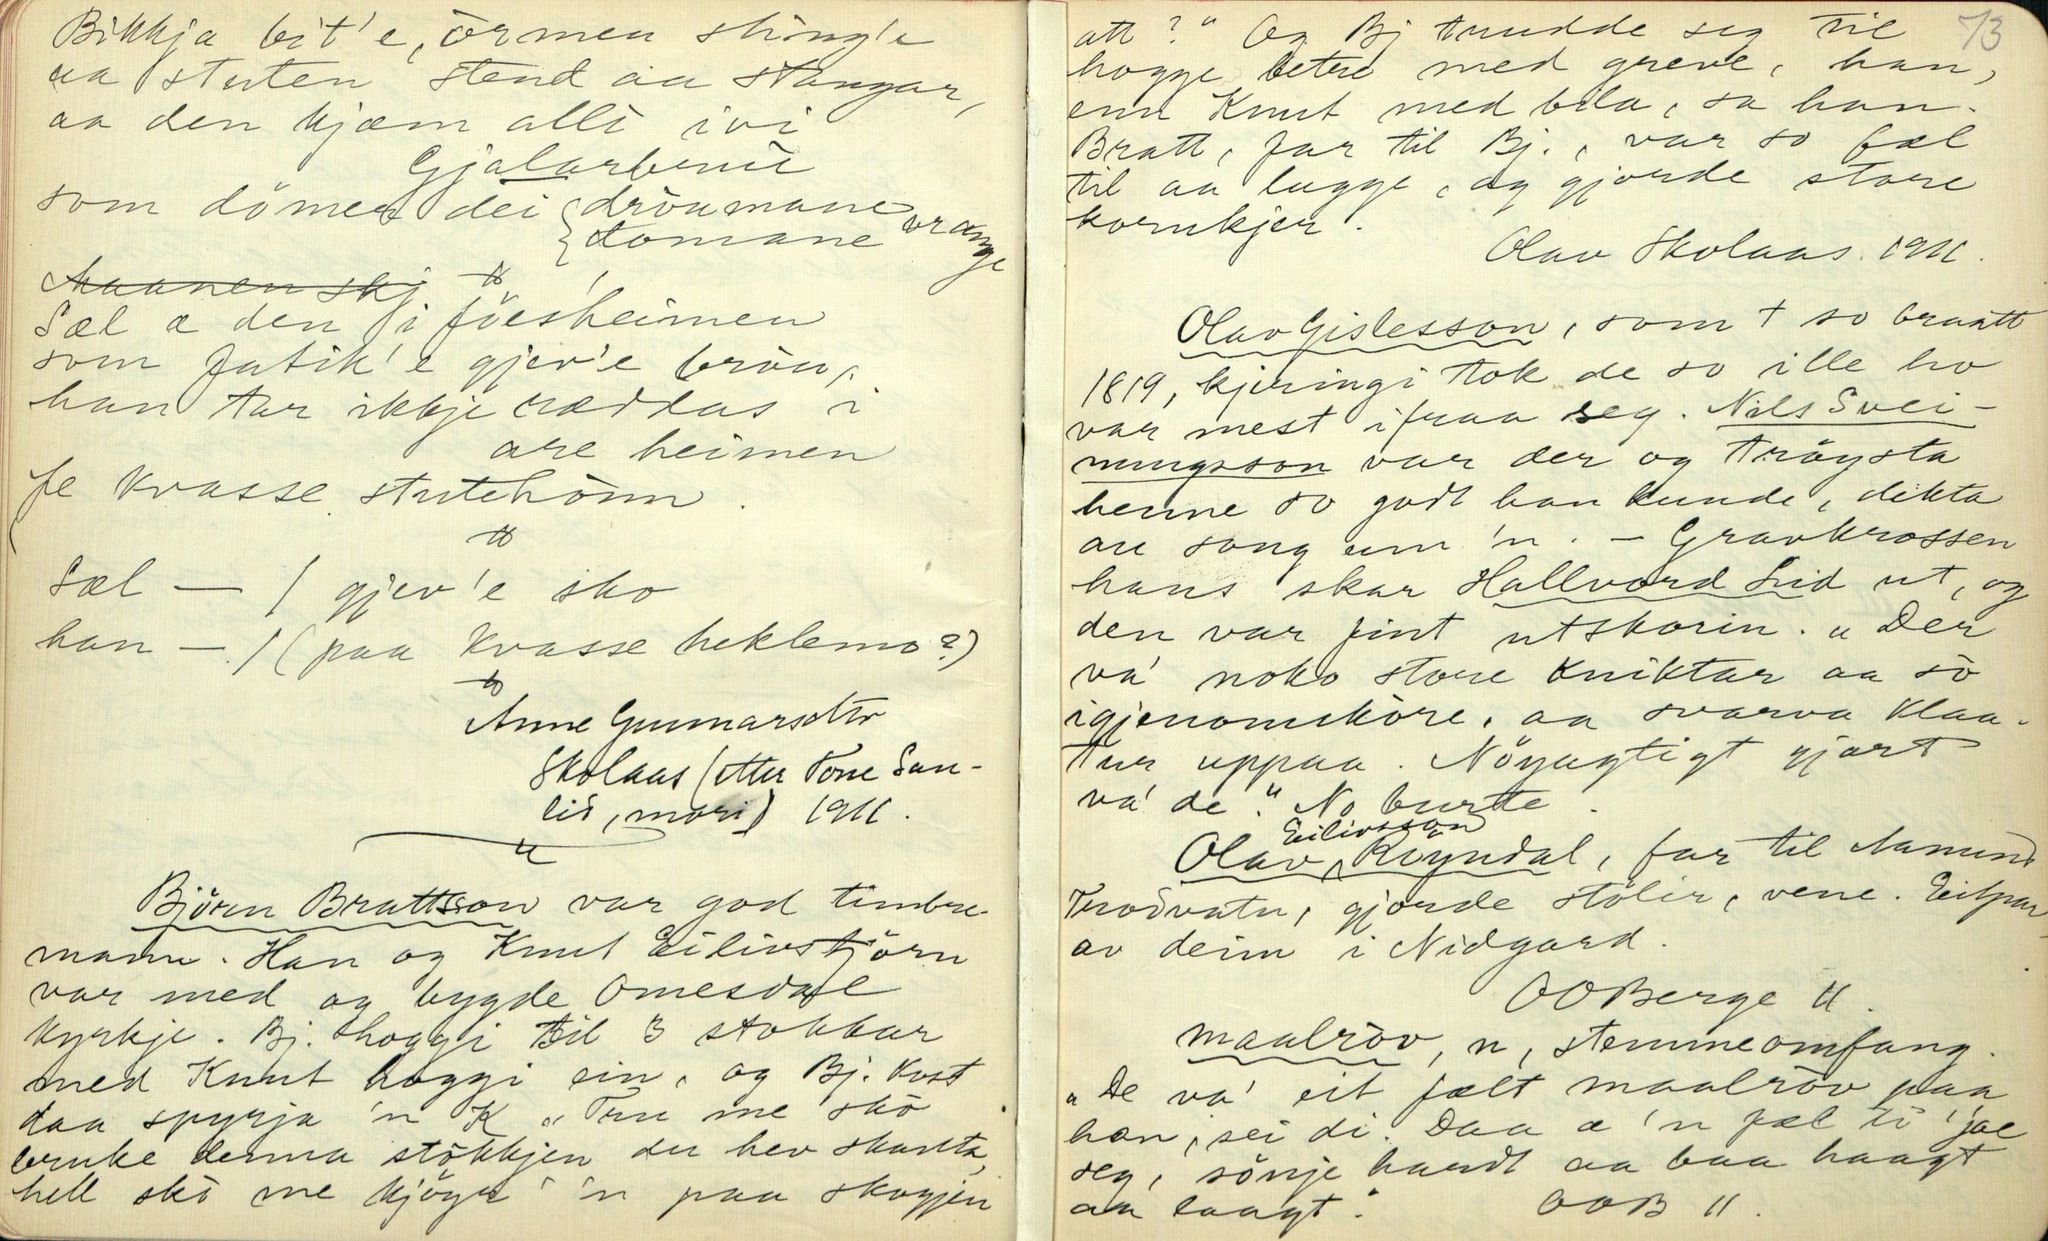 Bikkja bit'e, ormen sting'e
aa stuten stend aa stangar,
aa den kjæm alli ivi
Gjalarbrui
som dömer dei { dròumane vrange
{ domane
Maanen skj
Sæl æ den i föesheimen
som fatik'e gjev'e bròu,
han tar ikkje ræddas i
are heimen
fe kvasse stutehònn.
Sæl — / gjev'e sko
han — / (paa kvasse heklemo?)
Anne Gunnarsdtr
Skolaas (etter Tone San-
lid, mori) 1911.
Björn Brattsson var god timbre-
mann. Han og Knut Eilivstjörn
var med og bygde Omesdal
kyrkje. Bj. hoggji til 3 stokkar
med Knut hoggji ein, og Bj. kost
daa spyrja 'n K "Tru me sko
bruke denna stökkjen du hev skanta,
hell sko me kjöyre 'n paa skogjen
73
att?" Og Bj trudde seg til
hogge betre med greve, han,
enn Knut med bila, sa han.
Bratt, far til Bj., var so fæl
til aa lagge, og gjorde store
kornkjer.
Olav Skolaas 1911.
Olav Gislesson, som † so braatt
1819, kjeringi tok de so ille ho
var mest ifraa seg. Nils Svei-
nungsson var der og tröysta
henne so godt han kunde, dikta
ou song um 'n. – Gravkrossen
hans skar Hallvord Lid ut, og
den var fint utskorin. "Der
va' noko store kniktar aa so
igjenomskòre, aa svarva klaa-
tur uppaa. Nöyagtigt gjort
va' de." No burte.
Olav Eilivsson Röyndal, far til Aamund
Trodvatn, gjorde stölir, vene. Eit par
av deim i Nidgard.
OOBerge 11.
maalròv, n, stemmeomfang.
"De va' eit fælt maalròv paa
han, sei di. Daa æ 'n fæl ti jae
seg, sònje handt aa baa haagt
aa laagt."
OOB 11.